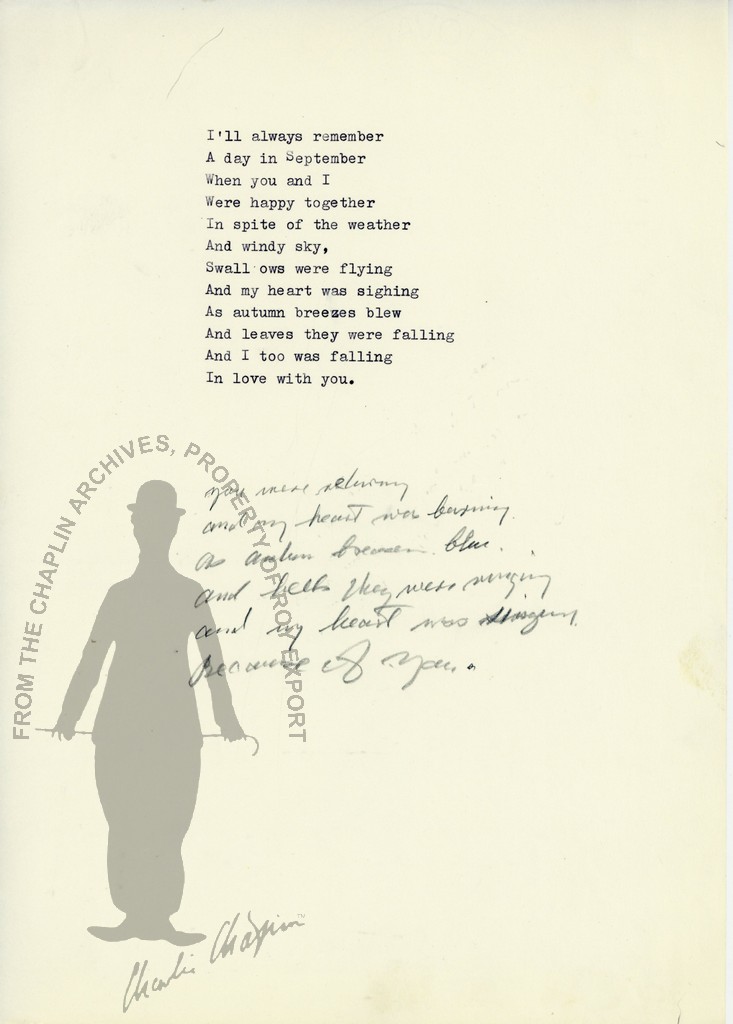 I'll always remember
A day in September
When you and I
Were happy together
In spite of the weather
And windy sky,
Swall ows were flying
And my heart was sighing
As autumn breezes blew
And leaves they were falling
And I too was falling
In love with you.
you were
and my heart was burning
as breezes blew.
and bells they were ringing
and my heart was
Because of you.
FROM THE CHAPLIN ARCHIVES, PROPERTY OF ROY EXPORT
Charlie Chaplin